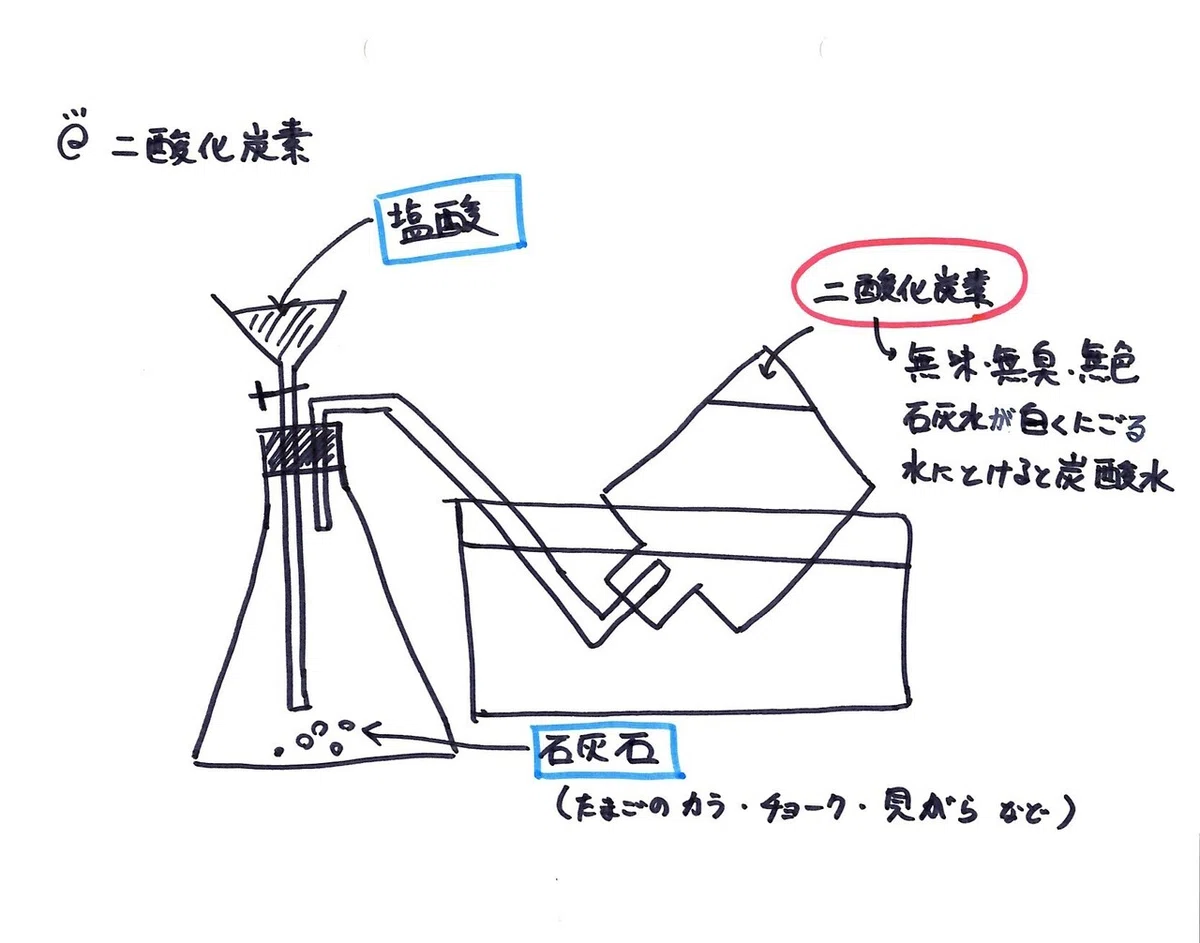 @ 二酸化炭素
塩酸
二酸化炭素
無味・無臭・無色
石灰水が白くにごる
水にとけると炭酸水
石灰石
(たまごのカラ・チョーク・貝がらなど)